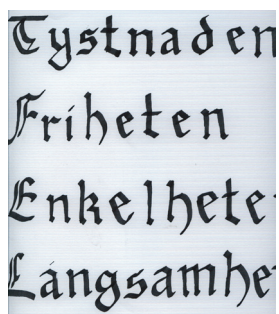 Tystnaden
Friheten
Enkelhete
Långsamhe